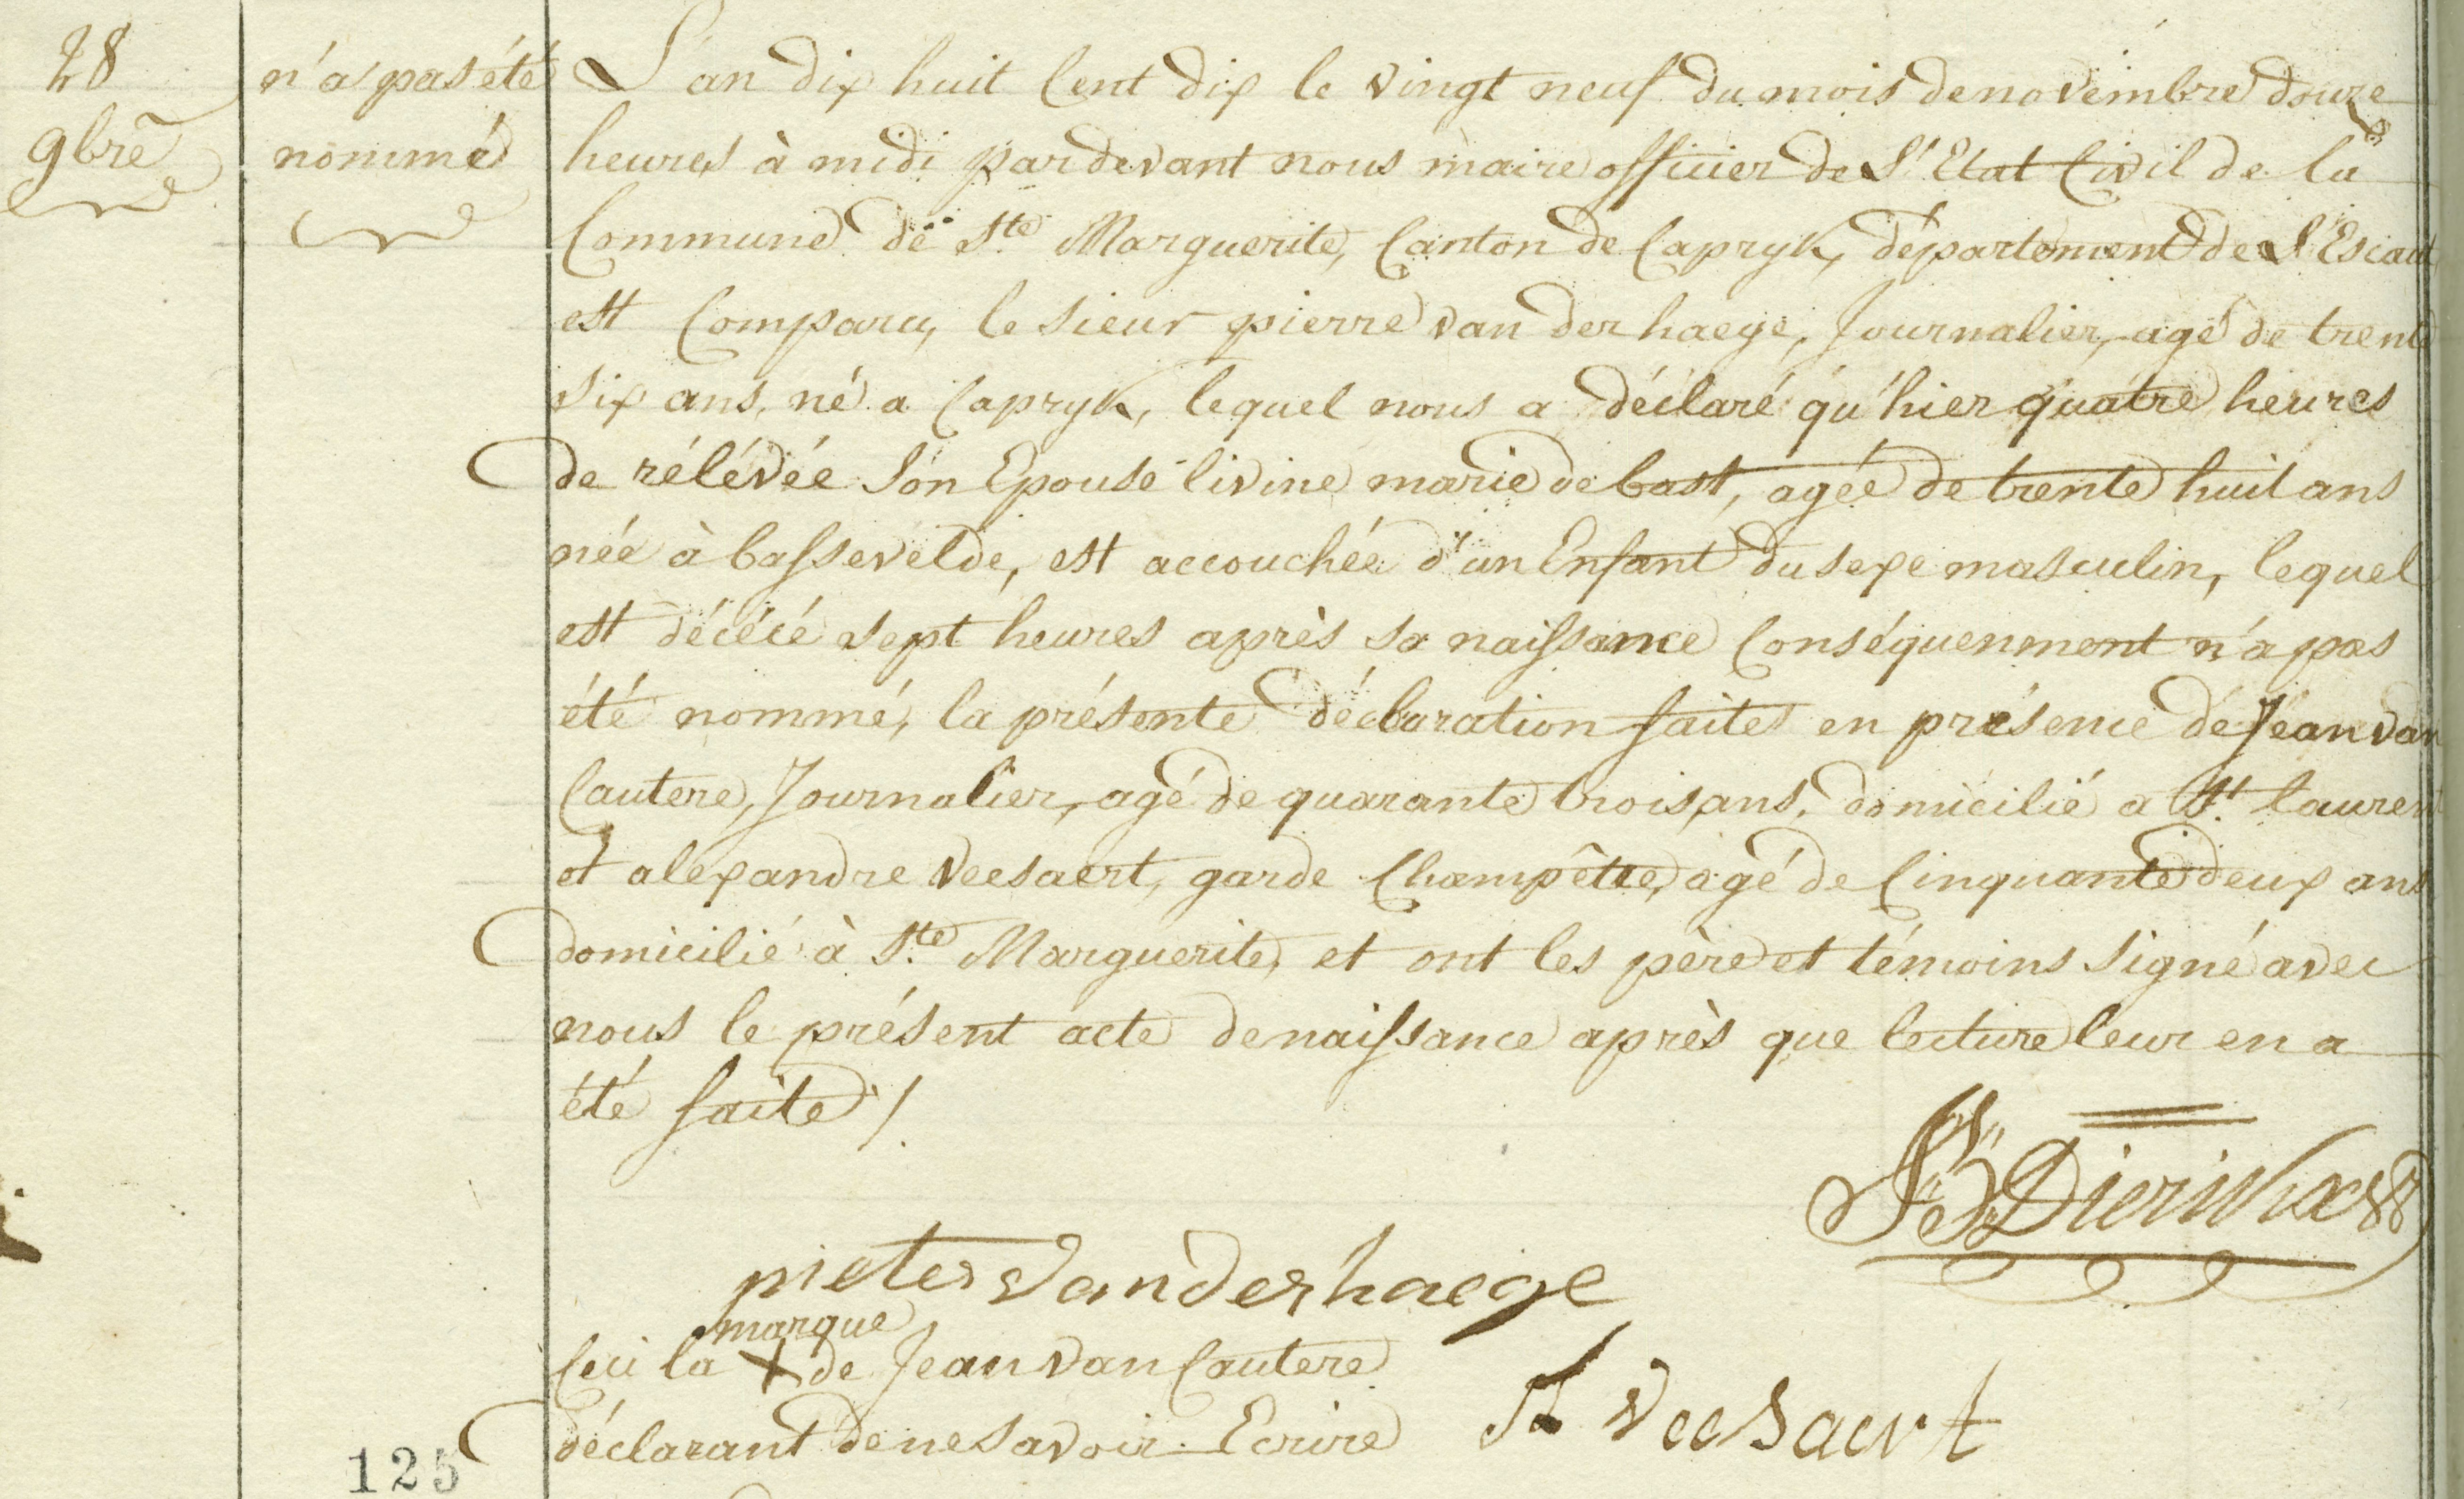 28
9bre
n'a pas été
nommé
L'an dix huit Cent dix le vingt neuf du mois de novembre douze
heures à midi par devant nous maire officier de L'Etat Civil de la
Commune de Ste Marguerite, Canton de Capryk, département de L'Escaut
est Comparu, le sieur pierre van der haege, Journalier, agé de trente
six ans, né a Capryk, lequel nous a déclaré qu'hier quatre heures
de rélévée Son Epouse livine marie de bast, agée de trente huit ans
née à bassevelde, est accouchée d'un Enfant du sexe masculin, lequel
est décécé sept heures après sa naissance Conséquenment n'a pas
été nommé, la présente déclaration faites en présence de Jean van
Cautere, Journalier, agé de quarante trois ans, domicilié a St. laurent
et alexandre Veesaert, garde Champêtre, agé de Cinquante deux ans
domicilié à Ste Marguerite, et ont les père et témoins signé avec
nous le présent acte de naissance après que lecture leur en a
été faite /.
Dierickx
pieter Vanderhaege
marque
Ceci la + de Jean van Cautere
déclarant de ne Savoir Ecrire
A Veesaert
125